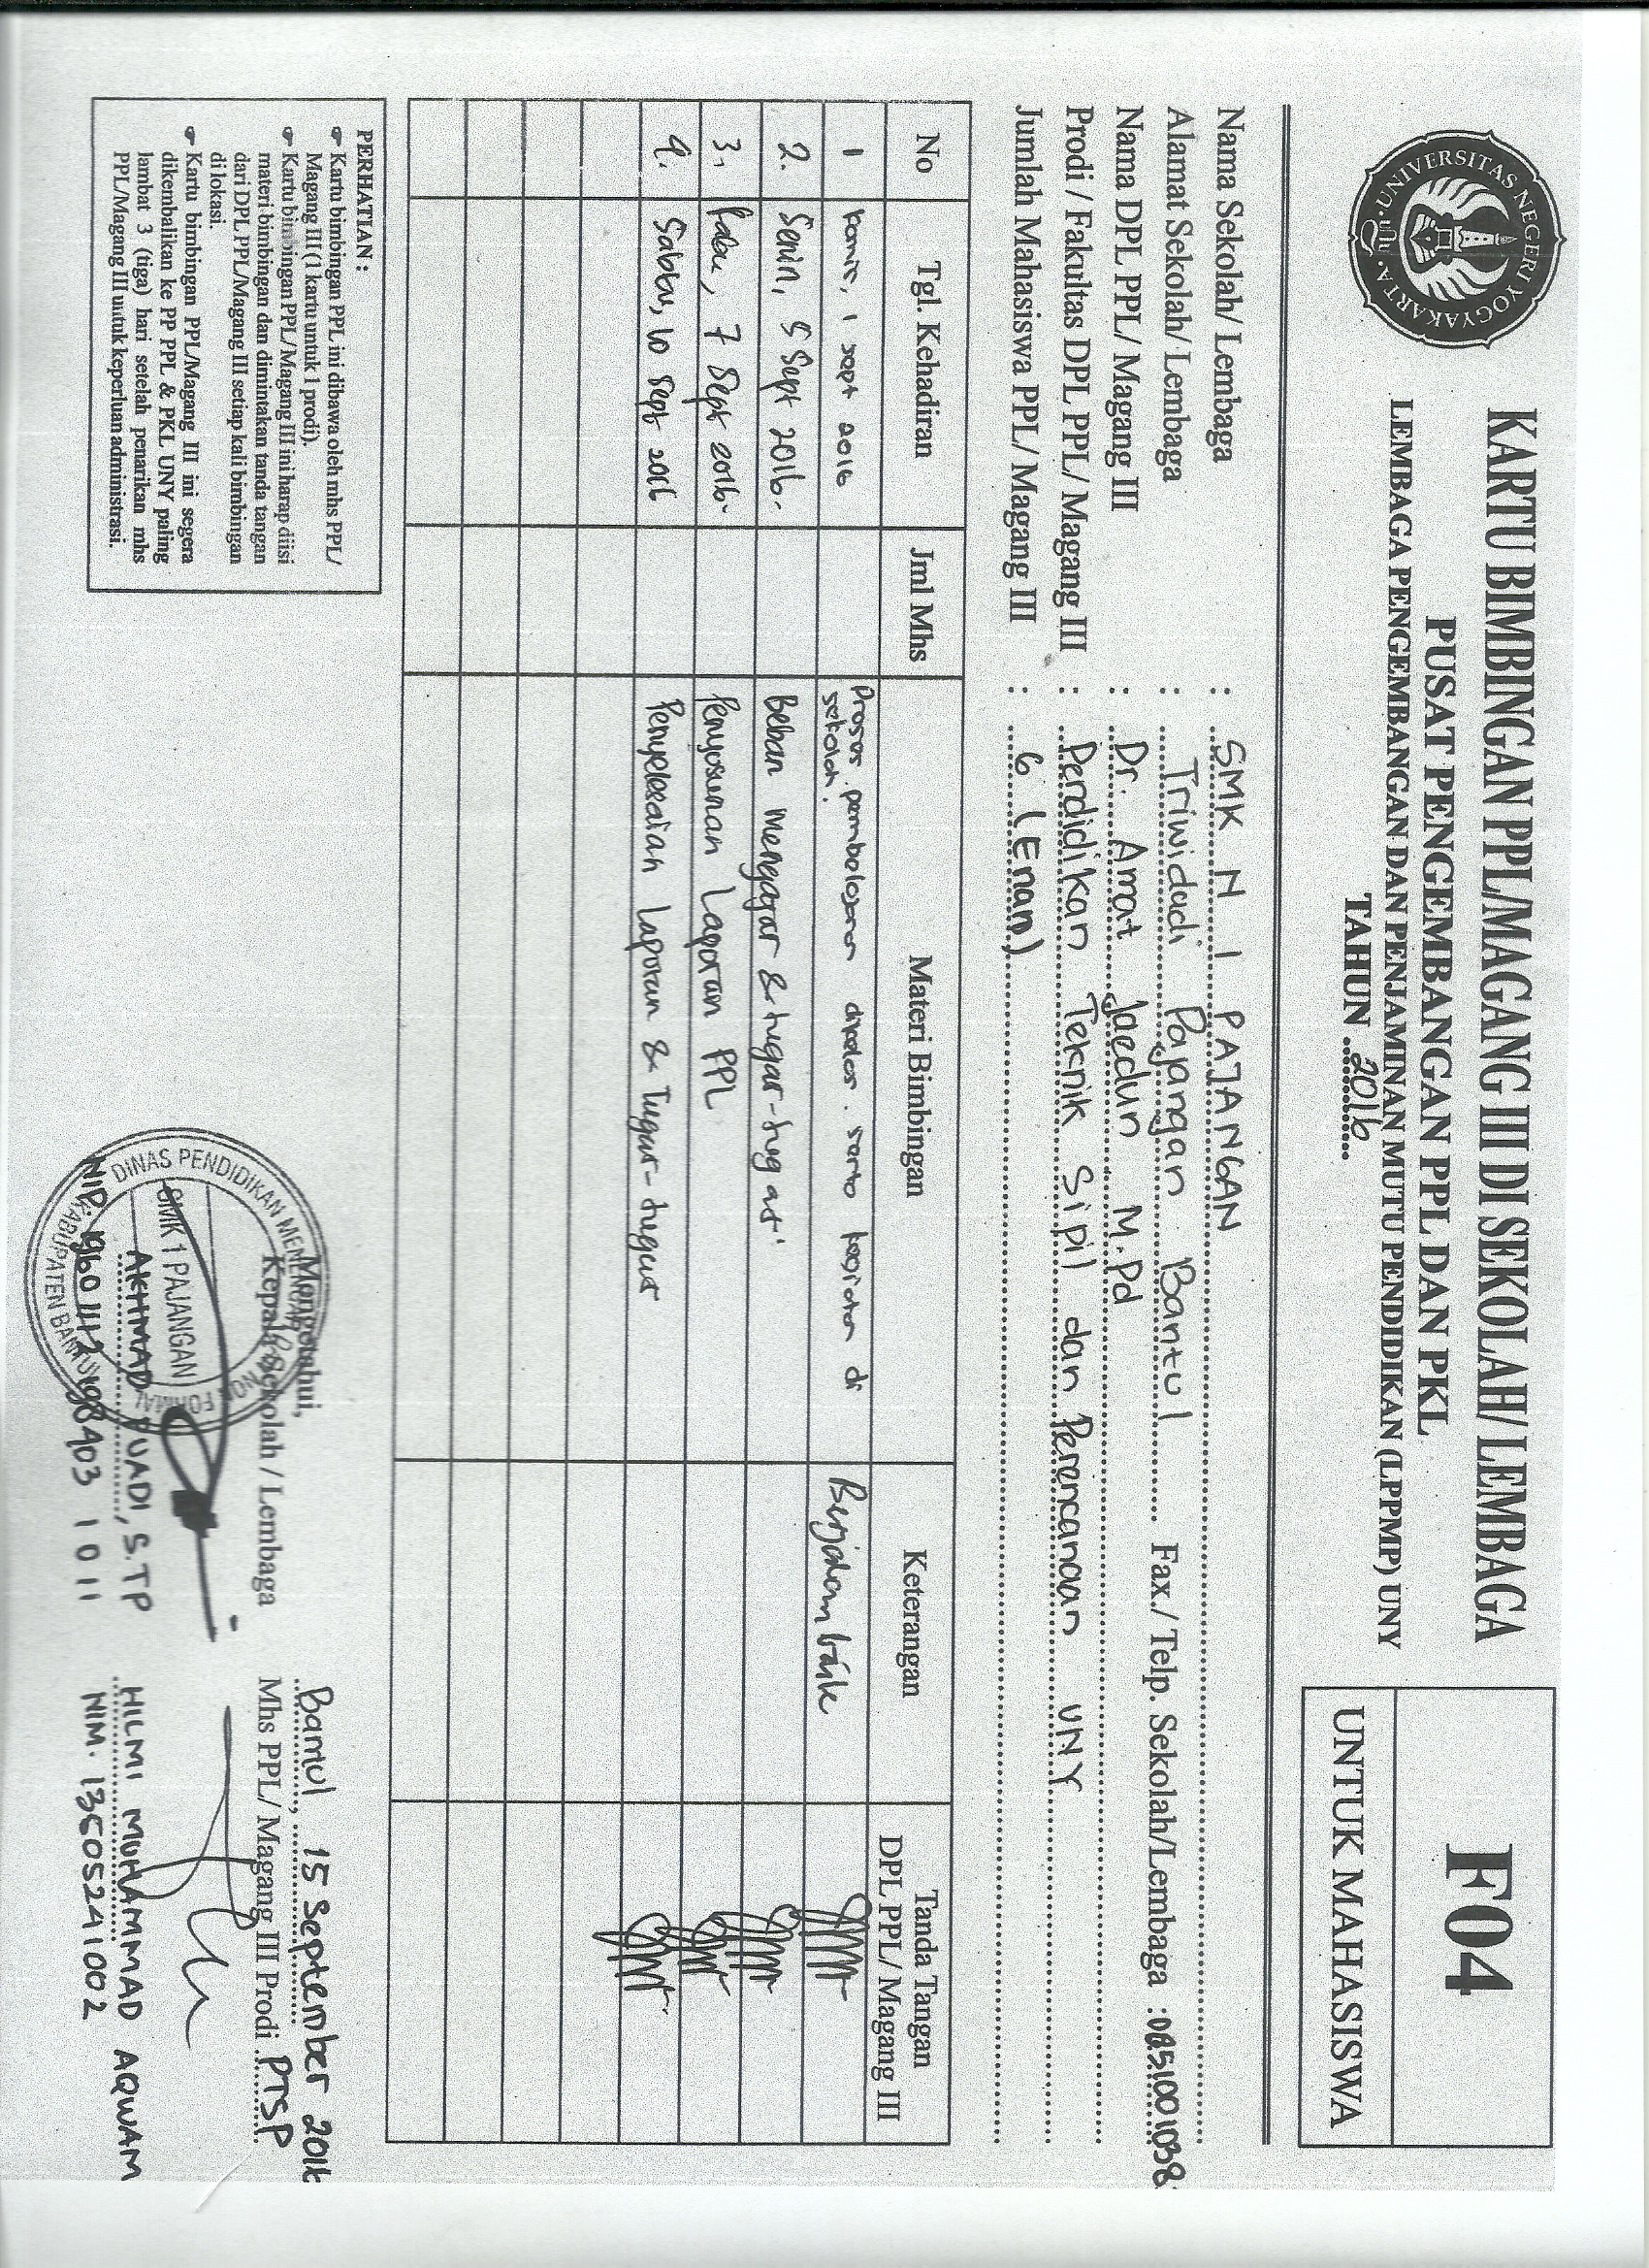 UNIVERSITAS NEGERI YOGYAKARTA
KARTU BIMBINGAN PPL/MAGANG III DI SEKOLAH/ LEMBAGA
PUSAT PENGEMBANGAN PPL DAN PKL
LEMBAGA PENGEMBANGAN DAN PENJAMINAN MUTU PENDIDIKAN (LPPMP) UNY
TAHUN 2016
F04
UNTUK MAHASISWA
Nama Sekolah/ Lembaga : SMK N 1 PAJANGAN
Alamat Sekolah/ Lembaga : Triwidadi Pajangan Bantul Fax./ Telp. Sekolah/Lembaga : 08510011038
Nama DPL PPL/ Magang III : Dr. Amat Jaedun M.Pd
Prodi / Fakultas DPL PPL/ Magang III : Pendidikan Teknik Sipil dan Perencanaan UNY
Jumlah Mahasiswa PPL/ Magang III : 6 (Enam)
No Tgl. Kehadiran Jml Mhs Materi Bimbingan Keterangan Tanda Tangan DPL PPL/ Magang III
1 Kamis, 1 sept 2016 Proses pembelajaran dikelas serta kegiatan di sekolah. Berjalan baik
2. Senin, 5 Sept 2016. Beban mengajar & tugas-tugas.
3. Rabu, 7 Sept 2016. Penyusunan Laporan PPL
4. Sabtu, 10 Sept 2016 Penyelesaian Laporan & Tugas-tugas
PERHATIAN :
☛ Kartu bimbingan PPL ini dibawa oleh mhs PPL/
Magang III (1 kartu untuk 1 prodi).
☛ Kartu bimbingan PPL/ Magang III ini harap diisi
materi bimbingan dan dimintakan tanda tangan
dari DPL PPL/Magang III setiap kali bimbingan
di lokasi.
☛ Kartu bimbingan PPL/Magang III ini segera
dikembalikan ke PP PPL & PKL UNY paling
lambat 3 (tiga) hari setelah penarikan mhs
PPL/Magang III untuk keperluan administrasi.
Mengetahui,
Kepala Sekolah / Lembaga
DINAS PENDIDIKAN MENENGAH NON FORMAL
SMK 1 PAJANGAN
KABUPATEN BANTUL
AKHMAD FUADI, S.TP
NIP. 19601112 198403 1 011
Bantul, 15 September 2016
Mhs PPL/ Magang III Prodi PTSP
HILMI MUHAMMAD AQWAM
NIM. 13505241002